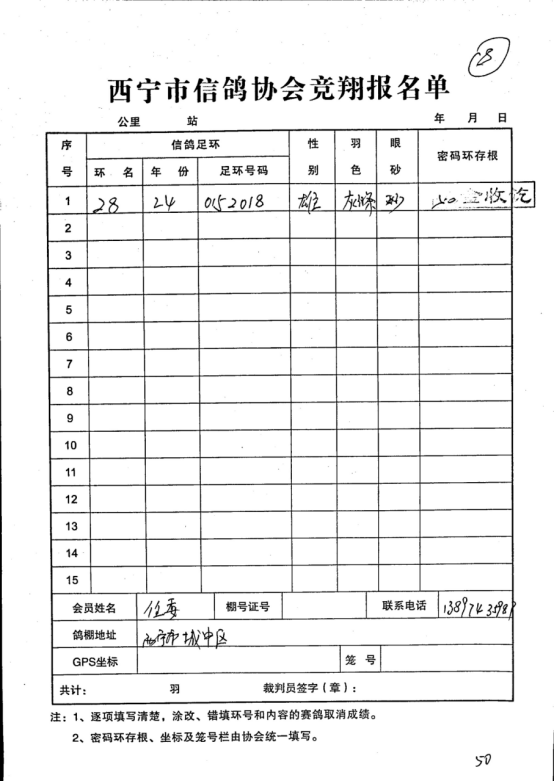 8
西宁市信鸽协会竞翔报名单
公里 站 年 月 日
序号 信鸽足环 性别 羽色 眼砂 密码环存根
环 名 年 份 足环号码
1 28 24 0152018 雄 灰 砂
2
3
4
5
6
7
8
9
10
11
12
13
14
15
会员姓名 棚号证号 联系电话
鸽棚地址 西宁市城中区
GPS坐标 笼 号
共计: 羽 裁判员签字(章):
注:1、逐项填写清楚,涂改、错填环号和内容的赛鸽取消成绩。
2、密码环存根、坐标及笼号栏由协会统一填写。
50